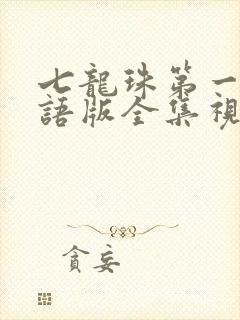 七龍珠第一
語版全集視
貪妄